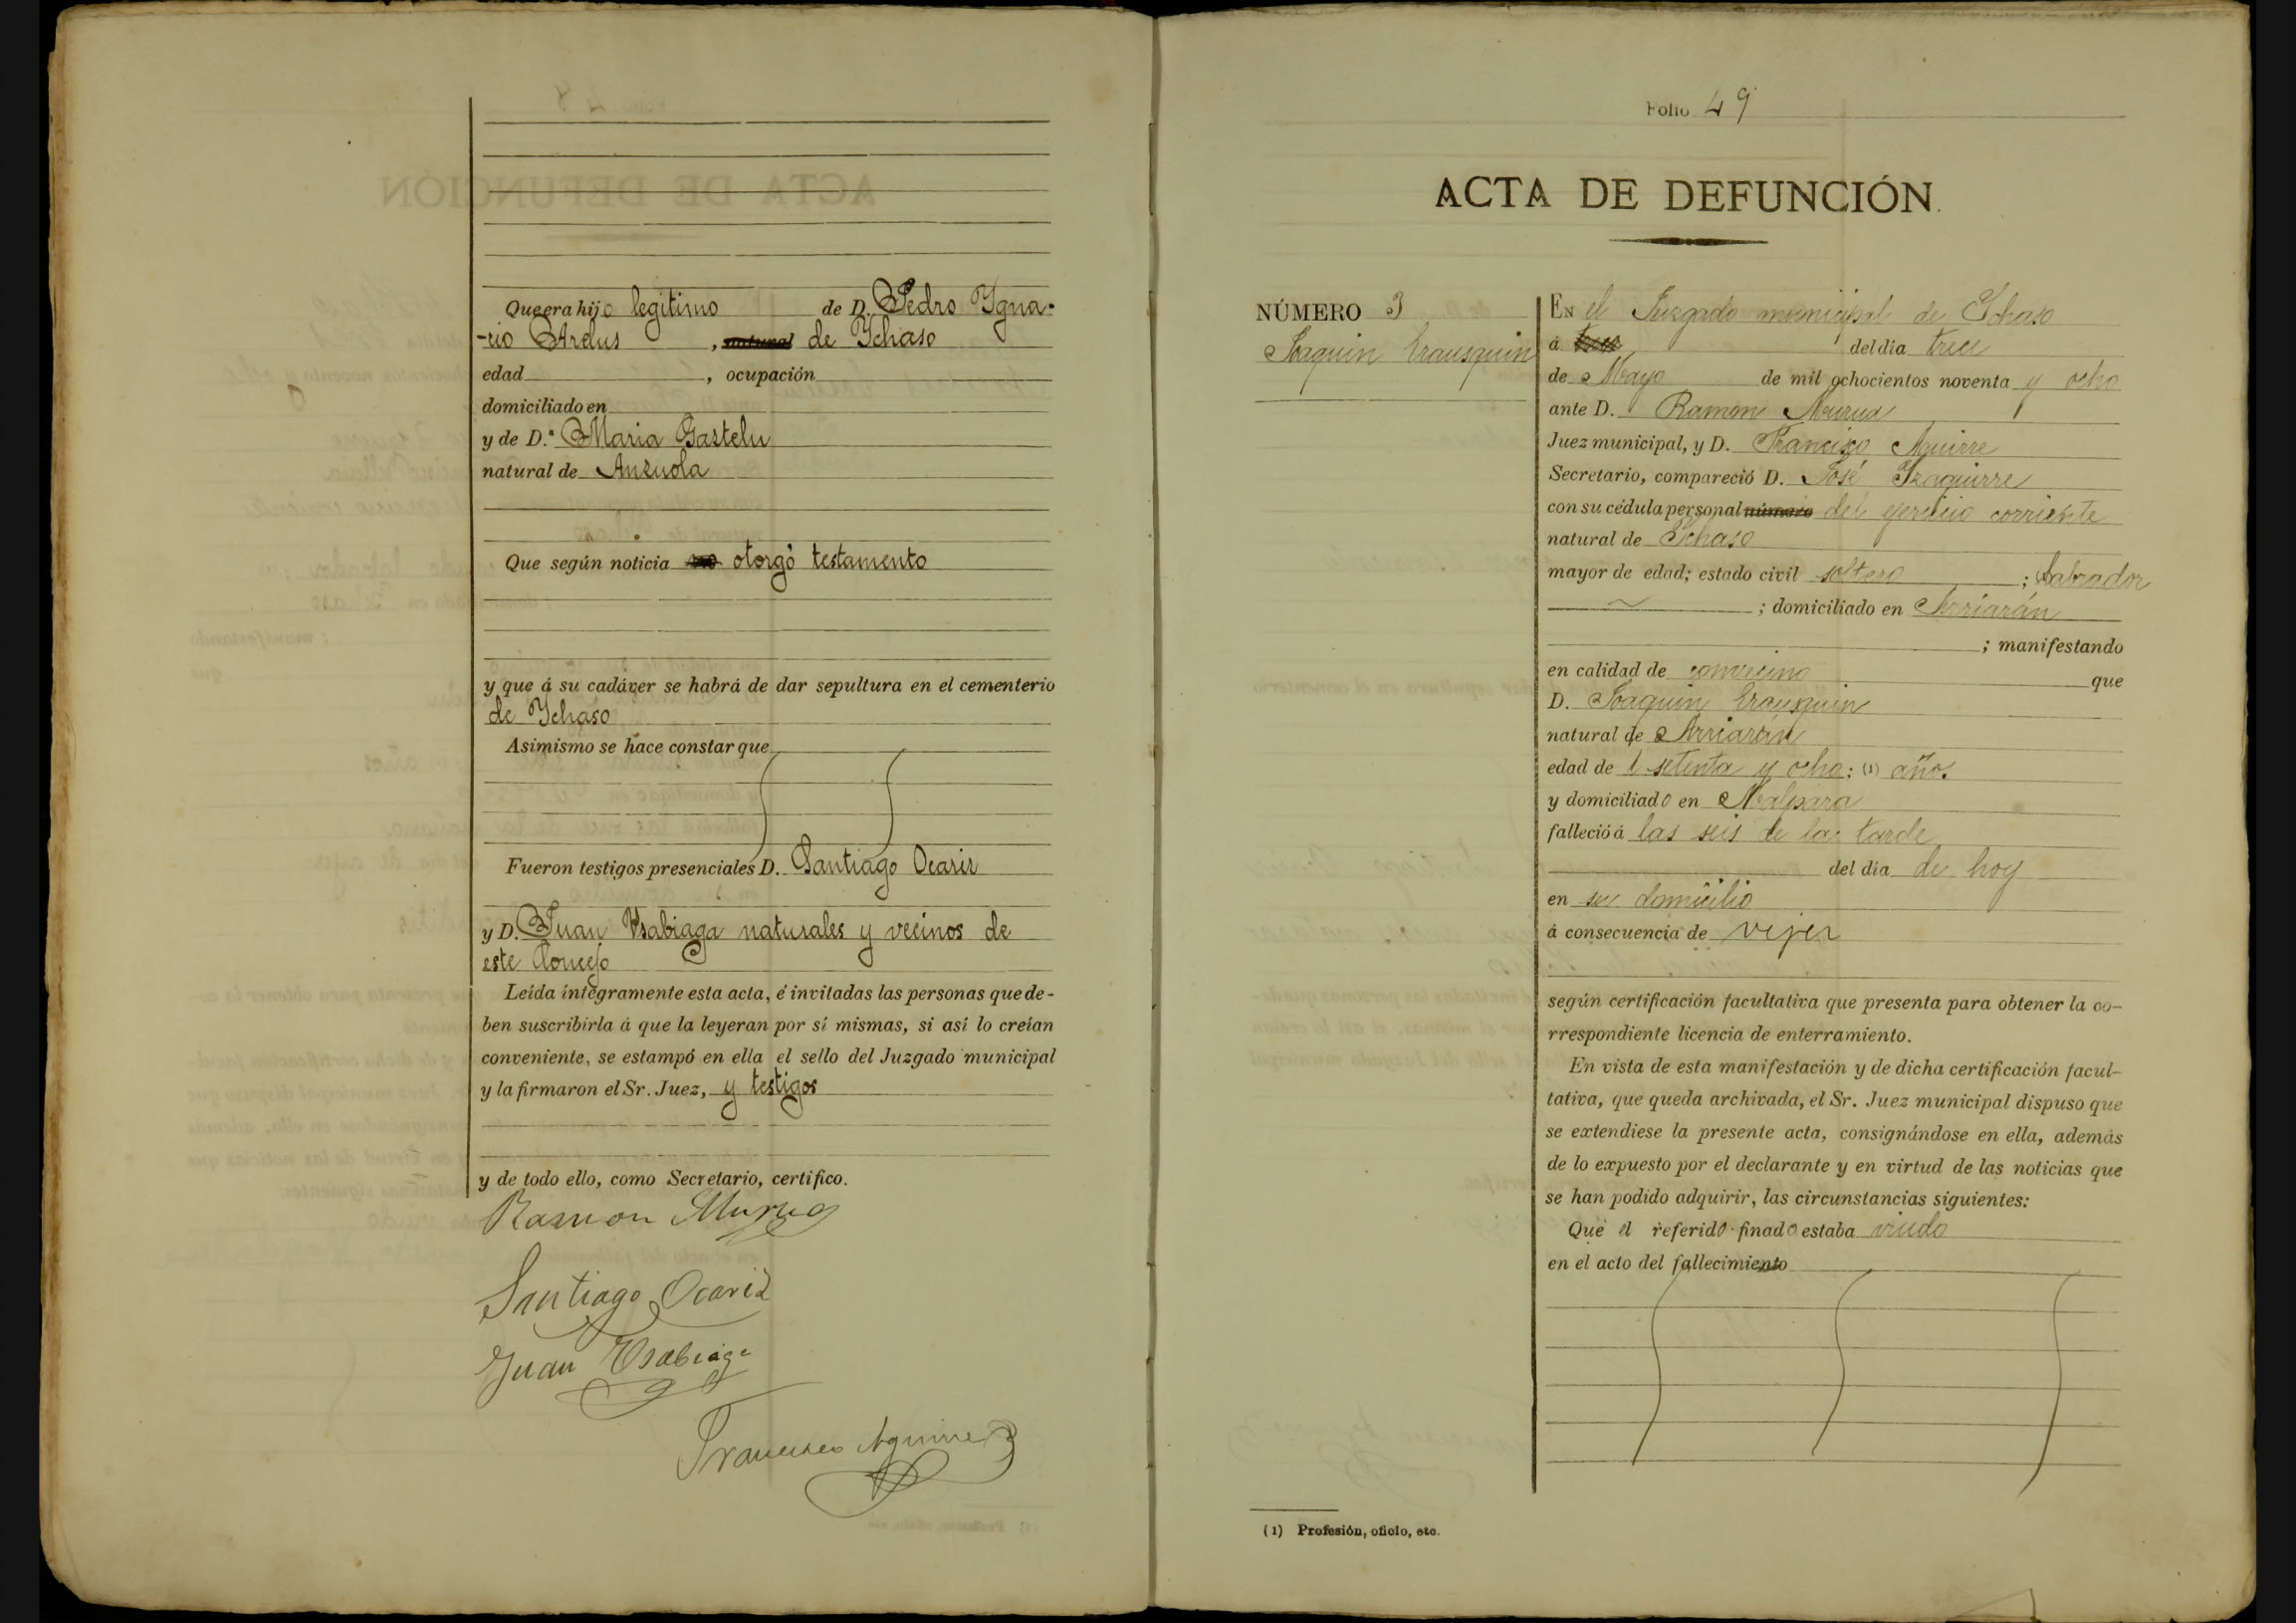 Que era hijo legitimo de D. Pedro Ygna-
-cio Ardus, natural de Ychaso
edad , ocupación
domiciliado en
y de D.ª Maria Gastelu
natural de Anzuola
Que según noticia no otorgó testamento
y que á su cadáver se habrá de dar sepultura en el cementerio
de Ychaso
Asimismo se hace constar que
Fueron testigos presenciales D. Santiago Ocariz
y D. Juan Usabiaga naturales y vecinos de
este Concejo
Leída íntegramente esta acta, é invitadas las personas que de-
ben suscribirla á que la leyeran por sí mismas, si así lo creían
conveniente, se estampó en ella el sello del Juzgado municipal
y la firmaron el Sr. Juez, y testigos
y de todo ello, como Secretario, certifico.
Ramon Murua
Santiago Ocariz
Juan Usabiaga
Francisco Aguirre
Folio 49
ACTA DE DEFUNCIÓN.
NÚMERO 3
Joaquin Erausquin
EN el Juzgado municipal de Ichaso
á tres del día trece
de Mayo de mil ochocientos noventa y ocho
ante D. Ramon Murua
Juez municipal, y D. Francisco Aguirre
Secretario, compareció D. José Izaguirre
con su cédula personal número del ejercicio corriente
natural de Ichaso
mayor de edad; estado civil soltero ; labrador
; domiciliado en Arriarán
; manifestando
en calidad de convecino que
D. Joaquin Erausquin
natural de Arriarán
edad de setenta y ocho; (1) años
y domiciliado en Malpara
falleció á las seis de la tarde
del día de hoy
en su domicilio
á consecuencia de vejez
según certificación facultativa que presenta para obtener la co-
rrespondiente licencia de enterramiento.
En vista de esta manifestación y de dicha certificación facul-
tativa, que queda archivada, el Sr. Juez municipal dispuso que
se extendiese la presente acta, consignándose en ella, además
de lo expuesto por el declarante y en virtud de las noticias que
se han podido adquirir, las circunstancias siguientes:
Que el referido finado estaba viudo
en el acto del fallecimiento
(1) Profesión, oficio, etc.